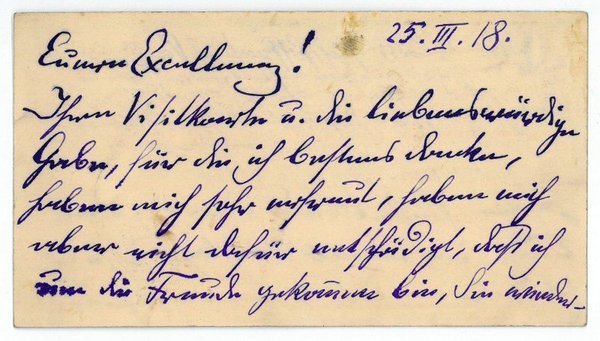 25. III. 18.
Euerer Excellenz!
Ihre Visitkarte u. die liebenswürdige
Gabe, für die ich bestens danke,
haben mich sehr erfreut, haben mich
aber nicht dafür entschädigt, daß ich
um die Freude gekommen bin, Sie wieder-